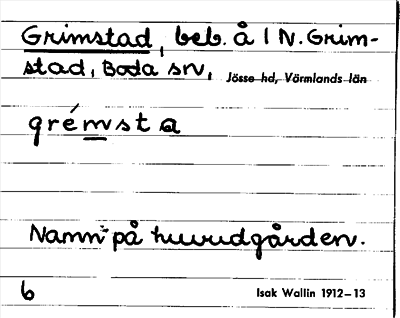 Grimstad, beb. å 1 N. Grim-
stad, Boda sn, Jösse hd, Värmlands län
grémsta
Namn på huvudgården.
6 Isak Wallin 1912–13